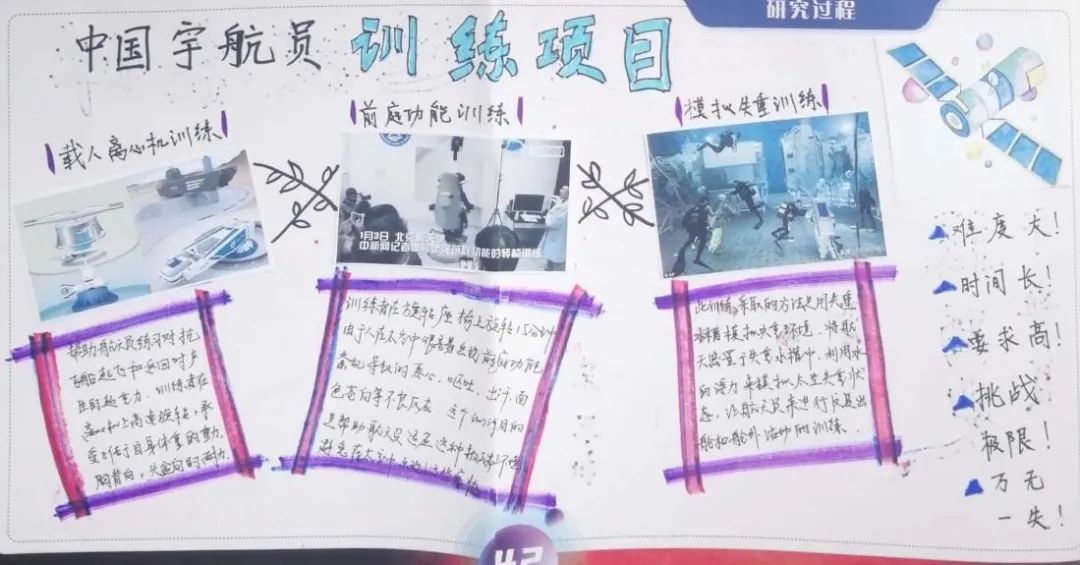 研究过程
中国宇航员 训练项目
载人离心机训练
前庭功能训练
模拟失重训练
1月3日 北京
中新网记者 功能的转椅训练
帮助航天员练习对抗
飞船起飞和返回时产
生的超重力，训练者在
离心机上高速旋转，承
受 于自身体重的重力，
胸背向，头盆向的耐力。
训练者在旋转座椅上旋转15分钟
由于人在太空中很容易出现前庭功能
紊乱导致的恶心，呕吐，出汗，面
色苍白等不良反应 这个 目的
是帮助航天员适应这种
避免在太空
此训练采取的方法是用失重
水槽模拟失重环境，将航
天员置于失重水槽中，利用水
的浮力来模拟太空失重状
态，让航天员来进行反复出
舱和舱外活动的训练。
难度大！
时间长！
要求高！
挑战
极限！
万无
一失！
42